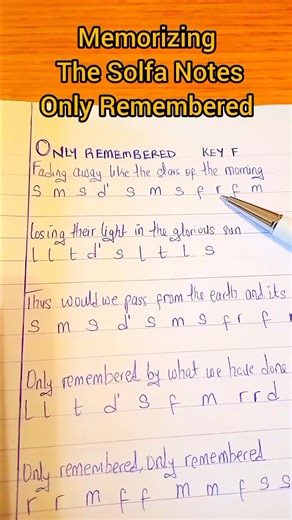 Memorizing
The Solfa Notes
Only Remembered
ONLY REMEMBERED KEY F
Fading away like the stars of the morning
S m s d' s m s f r f m
losing their light in the glorious sun
l l t d' s l t l s
Thus would we pass from the earth and its
s m s d' s m s f r f
Only remembered by what we have done
l l t d' s f m r r d
Only remembered, Only remembered
r r m f f m m f s s